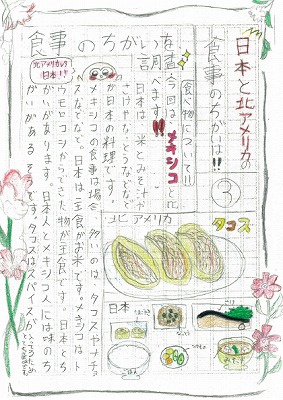 日本と北アメリカの
食事のちがいは!!
③
食事のちがいを調べます!!
北アメリカの
日本!!
食べ物について!!
今回は、メキシコと
日本は、米とみそしるが
さけやなっとうなどなど
が日本の料理です。
メキシコの食事は場合、多いのは、タコスやナチョ
スなどなど。日本は主食がお米です。メキシコはト
ウモロコシからできた物が主食です。日本とち
がいがあります。日本人とメキシコ人には味のち
がいがあるそうです。タコスはスパイスが入ってるため
北アメリカ
タコス
日本
さけ
ごはん